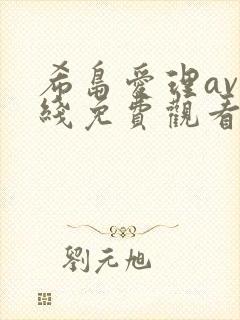 希島愛理av
綫免費觀看
劉元旭